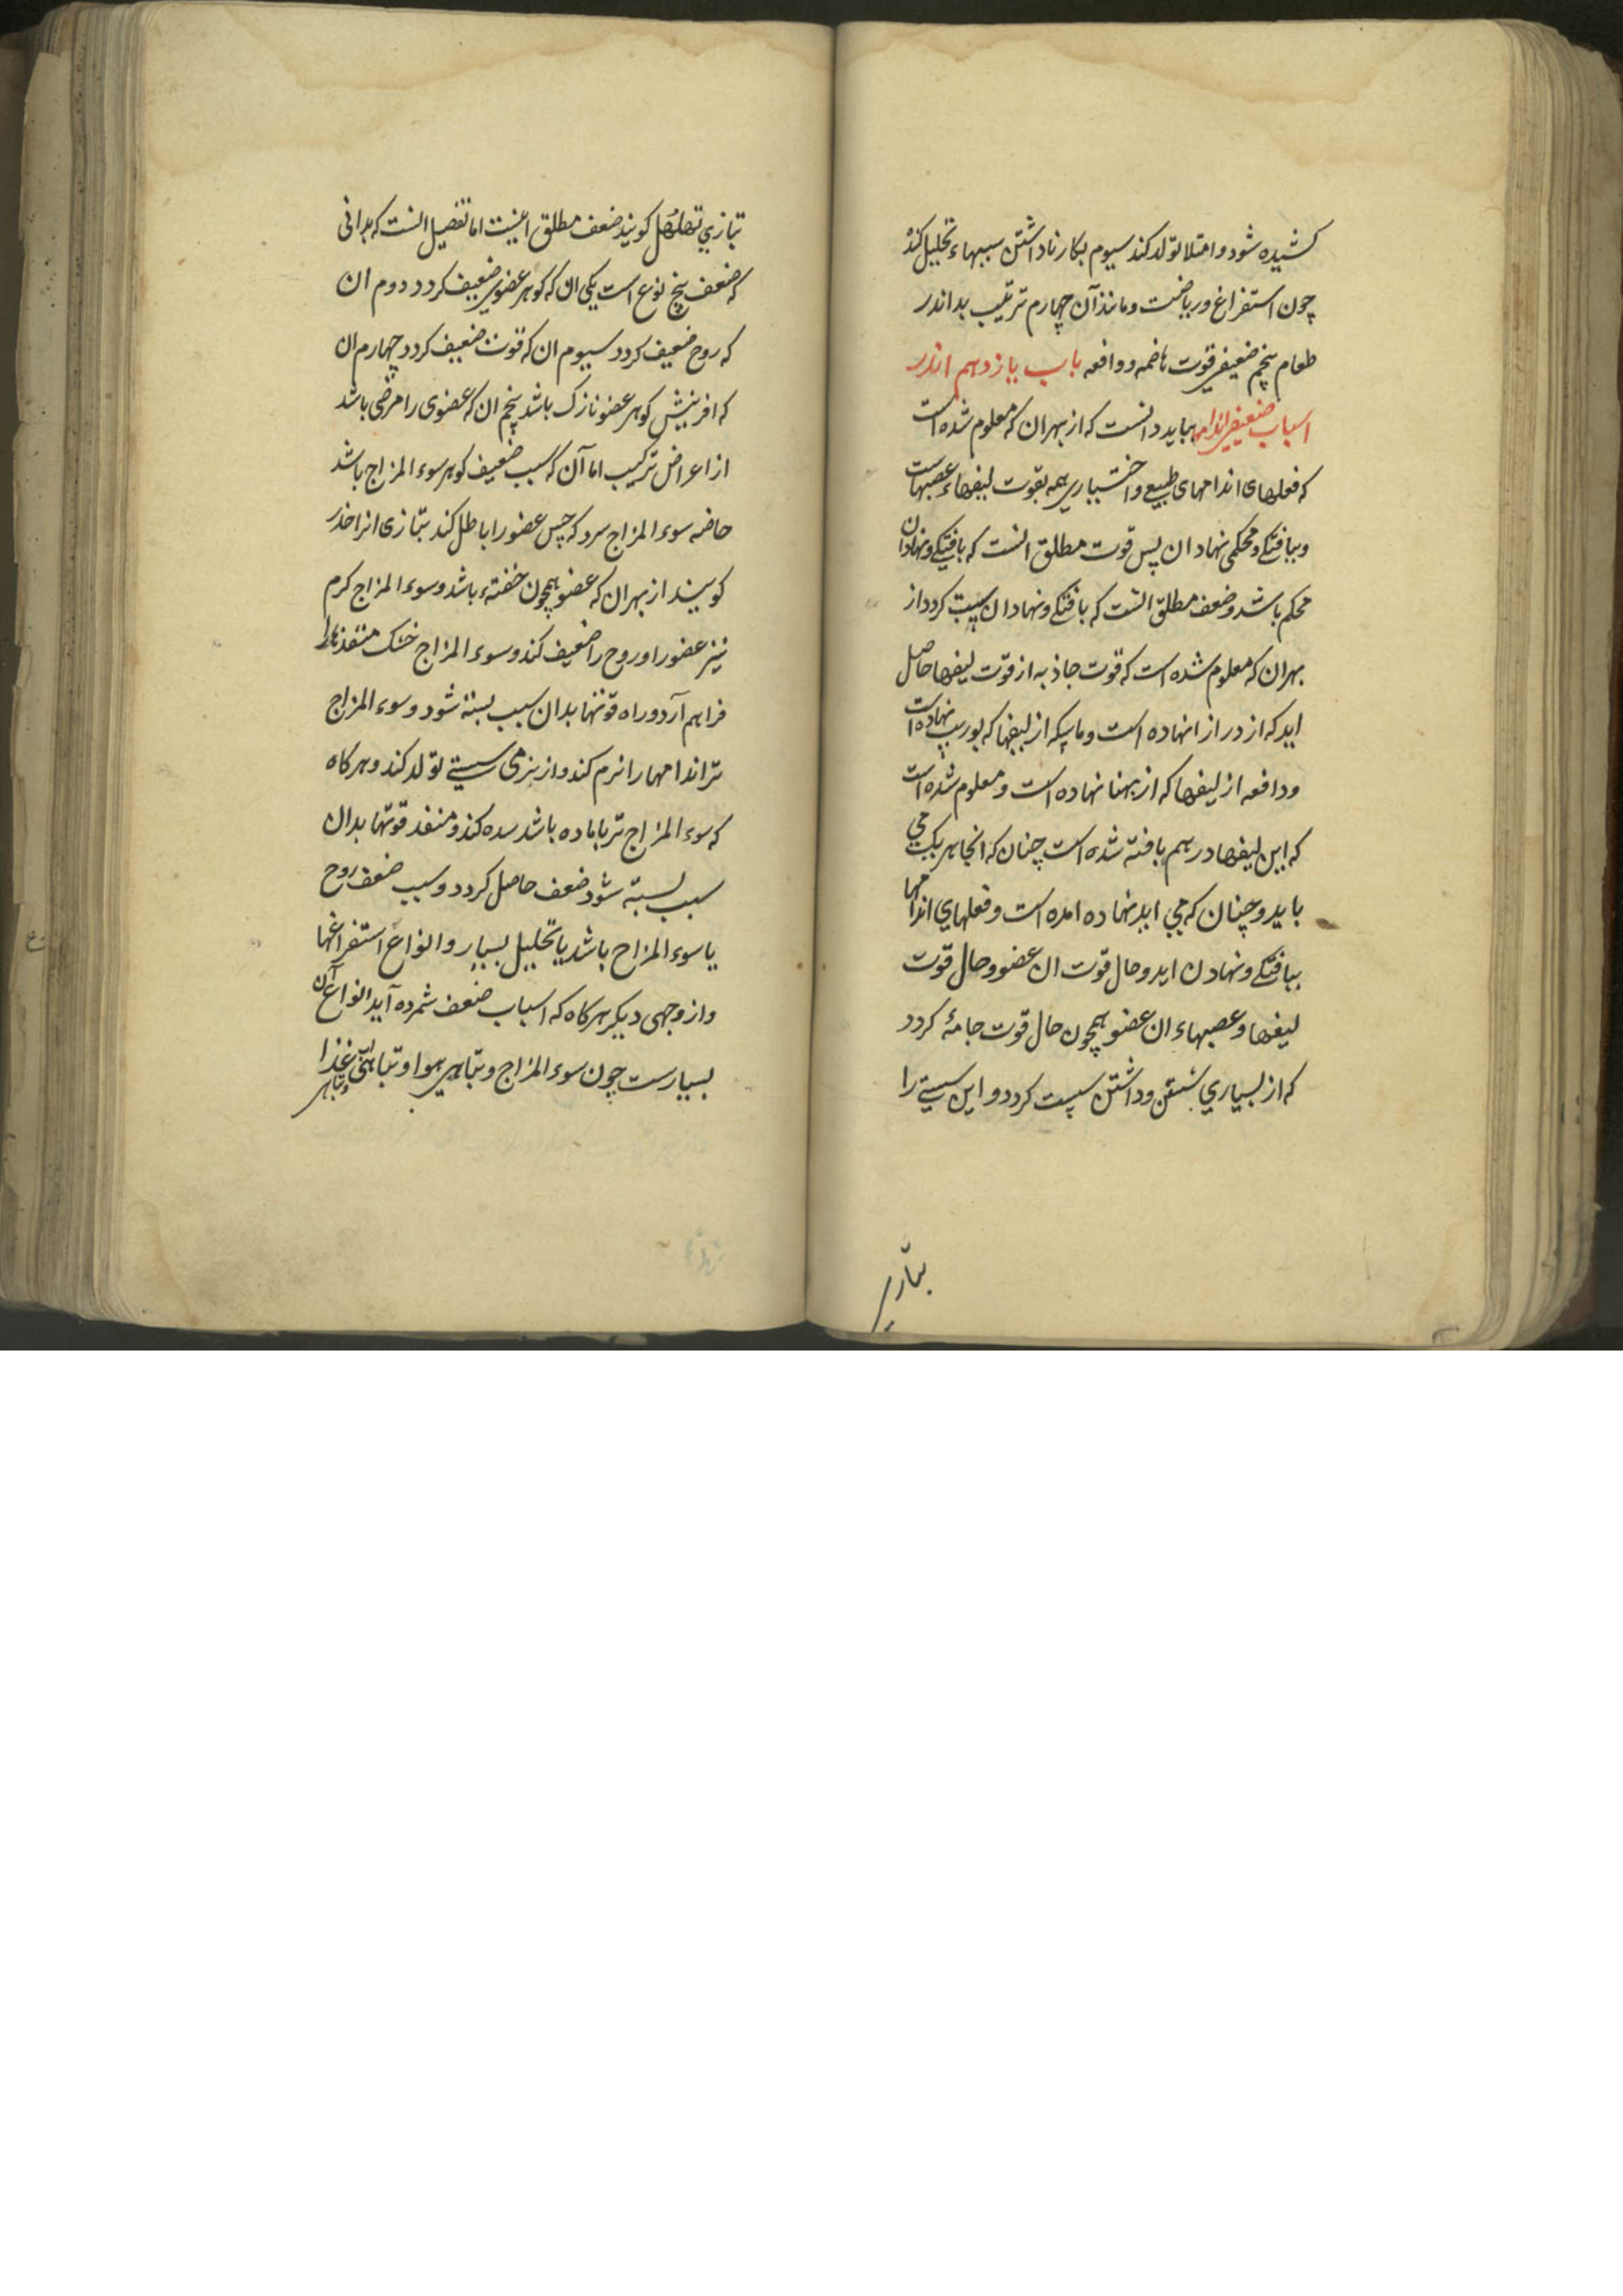 کشیده شود و امتلا تولد کند سیوم بکار ناداشتن سببهاء تحلیل کنذه
چون استفراغ و ریاضت و مانند آن چهارم ترتیب بد اندر
طعام پنجم ضعیفی قوت هاضمه و دافعه باب یازدهم اندر
اسباب ضعیفی اندامها بباید دانست که از بهر ان که معلوم شده است
که فعلهای اندامهای طبیعی و اختیاری همه بقوت لیفهاء عصبهاست
و ببافتکی و محکمی نهاد ان پس قوت مطلق انست که بافتکی و نهاد ان
محکم باشد و ضعف مطلق انست که بافتکی و نهاد ان سست کردد از
بهر ان که معلوم شده است که قوت جاذبه از قوت لیفها حاصل
اید که از درازا نهاده است و ماسکه از لیفها که بوریب نهاده است
و دافعه از لیفها که از پهنا نهاده است و معلوم شده است
که این لیفها در هم بافته شده است چنان که انجا هر یک می
باید و چنان که می اید نهاده امده است و فعلهای اندامها
ببافتکی و نهاد ان اید و حال قوت ان عضو و حال قوت
لیفها و عصبهاء ان عضو همچون حال قوت جامهٔ کردد
که از بسیاری شستن و داشتن سست کردد و این سستی را
بتازی
بتازی تهلهل کویند ضعف مطلق اینست اما تفصیل انست که بدانی
که ضعف پنج نوع است یکی ان که کوهر عضوی ضعیف کردد دوم ان
که روح ضعیف کردد سیوم ان که قوت ضعیف کردد چهارم ان
که افرینش کوهر عضو نازک باشد پنجم ان که عضوی را مرضی باشد
از اعراض ترکیب اما آن که سبب ضعیف کوهر سوء المزاج باشد
خاصه سوء المزاج سرد که حس عضو را باطل کند بتازی انرا خدر
کویند از بهر ان که عضو همچون خفتهء باشد و سوء المزاج کرم
نیز عضو را و روح را ضعیف کند و سوء المزاج خشک منفذها را
فراهم آرد و راه قوتها بدان سبب بسته شود و سوء المزاج
تر اندامها را نرم کند و از نرمی سستی تولد کند و هرکاه
که سوء المزاج تر با ماده باشد سده کند و منفذ قوتها بدان
سبب بسته شود ضعف حاصل کردد و سبب ضعف روح
یا سوء المزاج باشد یا تحلیل بسیار و انواع استفراغها
و از وجهی دیکر هرکاه که اسباب ضعف شمرده آید انواع آن
بسیارست چون سوء المزاج و تباهی هوا و تباهی غذا
و تباهی